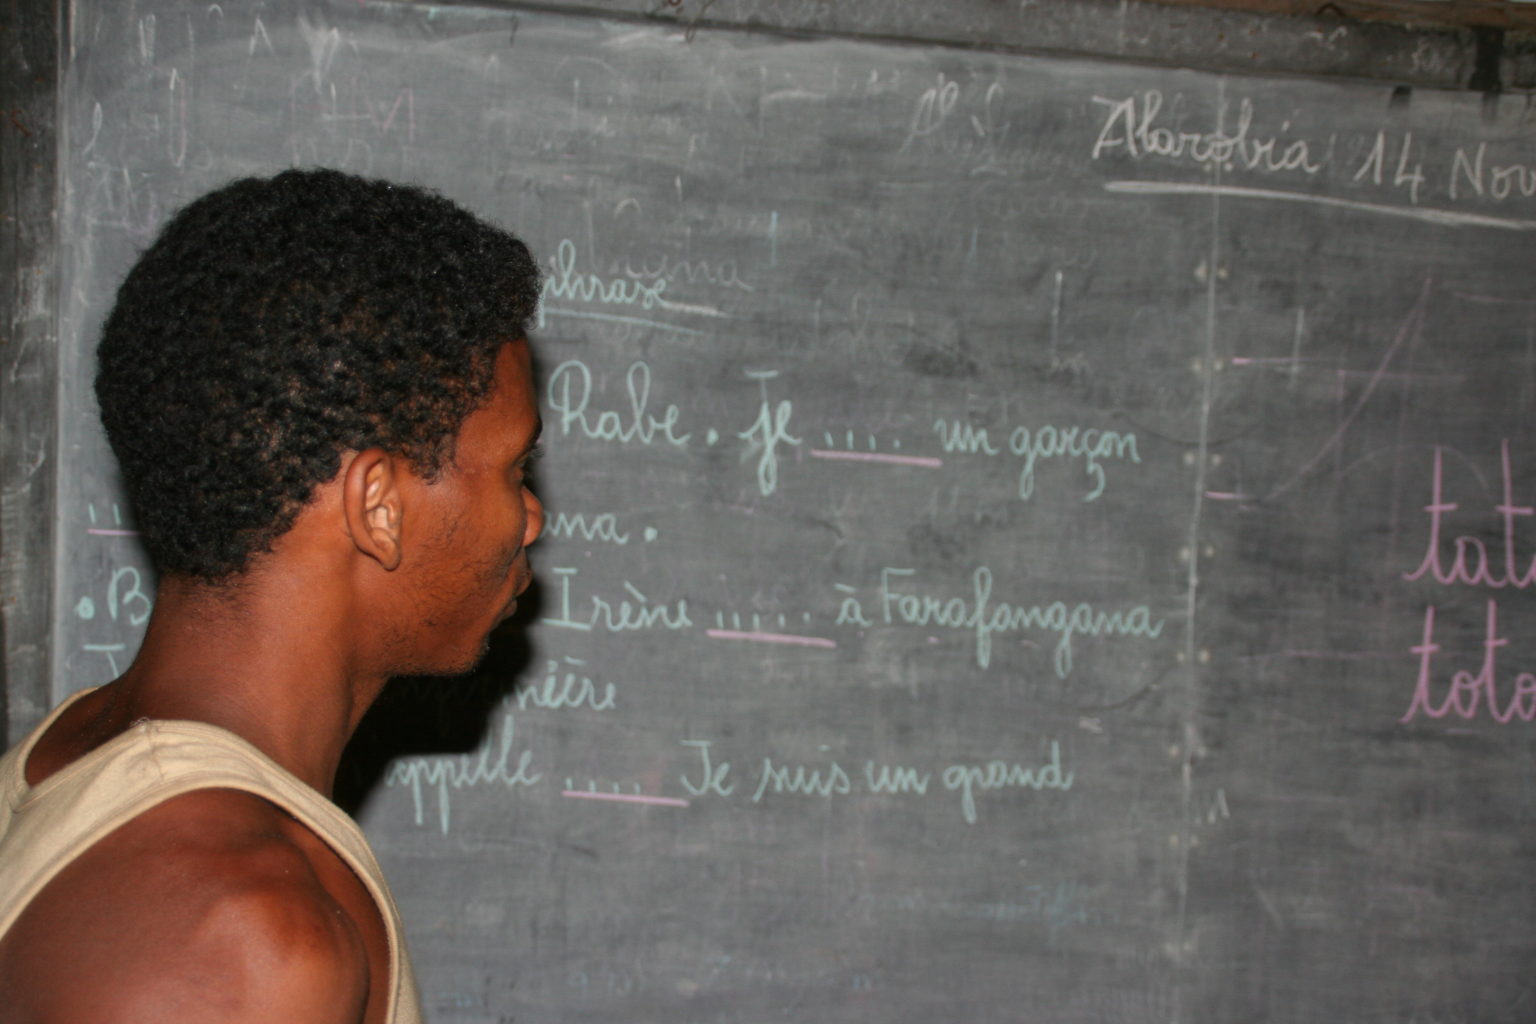 Alarobia 14 Nov
phrase
Rabe. Je ..... un garçon
..ana.
.B Irène ..... à Farafangana
J nière
appelle ..... Je suis un grand
tat
toto